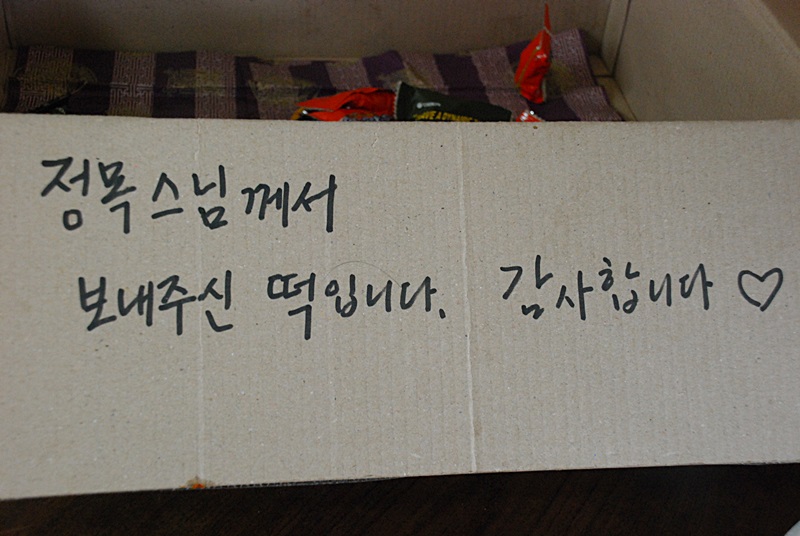 정목스님께서
보내주신 떡입니다. 감사합니다 ♡